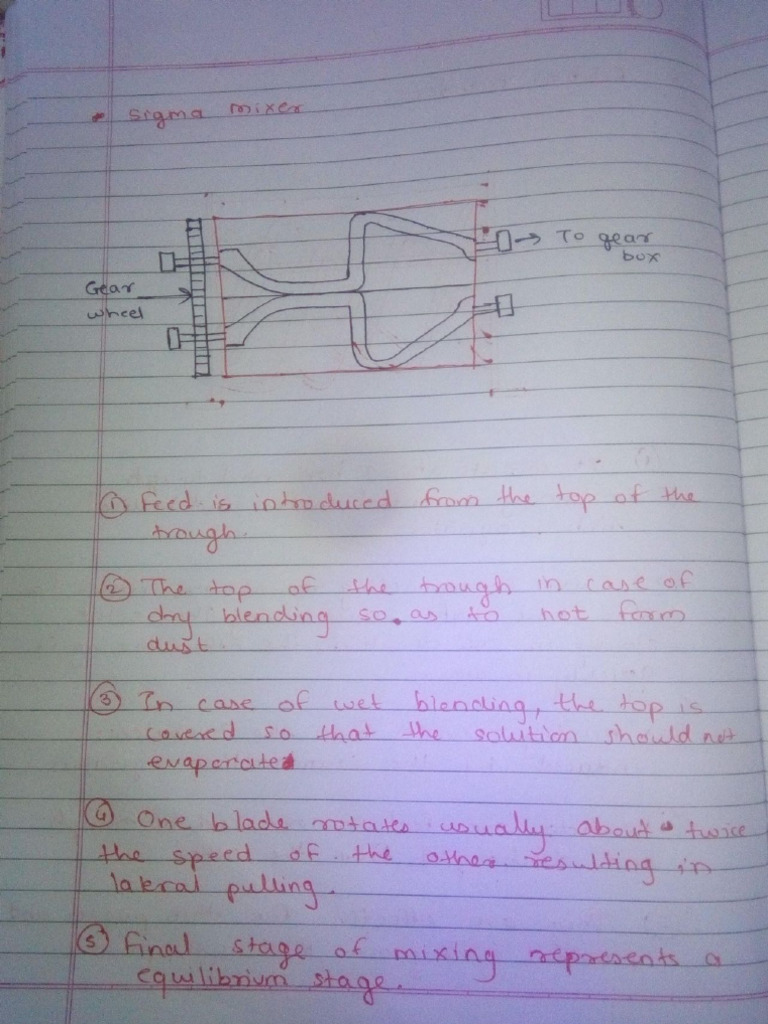 • Sigma mixer
→ To gear
box
Gear
wheel
① Feed is introduced from the top of the
trough.
② The top of the trough in case of
dry blending so as to not form
dust.
③ In case of wet blending, the top is
covered so that the solution should not
evaporate
④ One blade rotates usually about twice
the speed of the other resulting in
lateral pulling.
⑤ Final stage of mixing represents a
equilibrium stage.